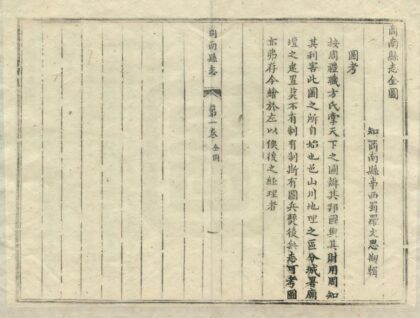 商南縣志全圖
知商南縣事西蜀羅文思輯
圖考
按周禮職方氏掌天下之圖辨其邦國與其財用周知
其利害此圖之所自始也邑山川地理之區分城署廟
壇之建置莫不有制有制斯有圖兵燹後無志可考圖
亦弗存今繪於左以俟後之經理者
商南縣志
第一卷 全圖